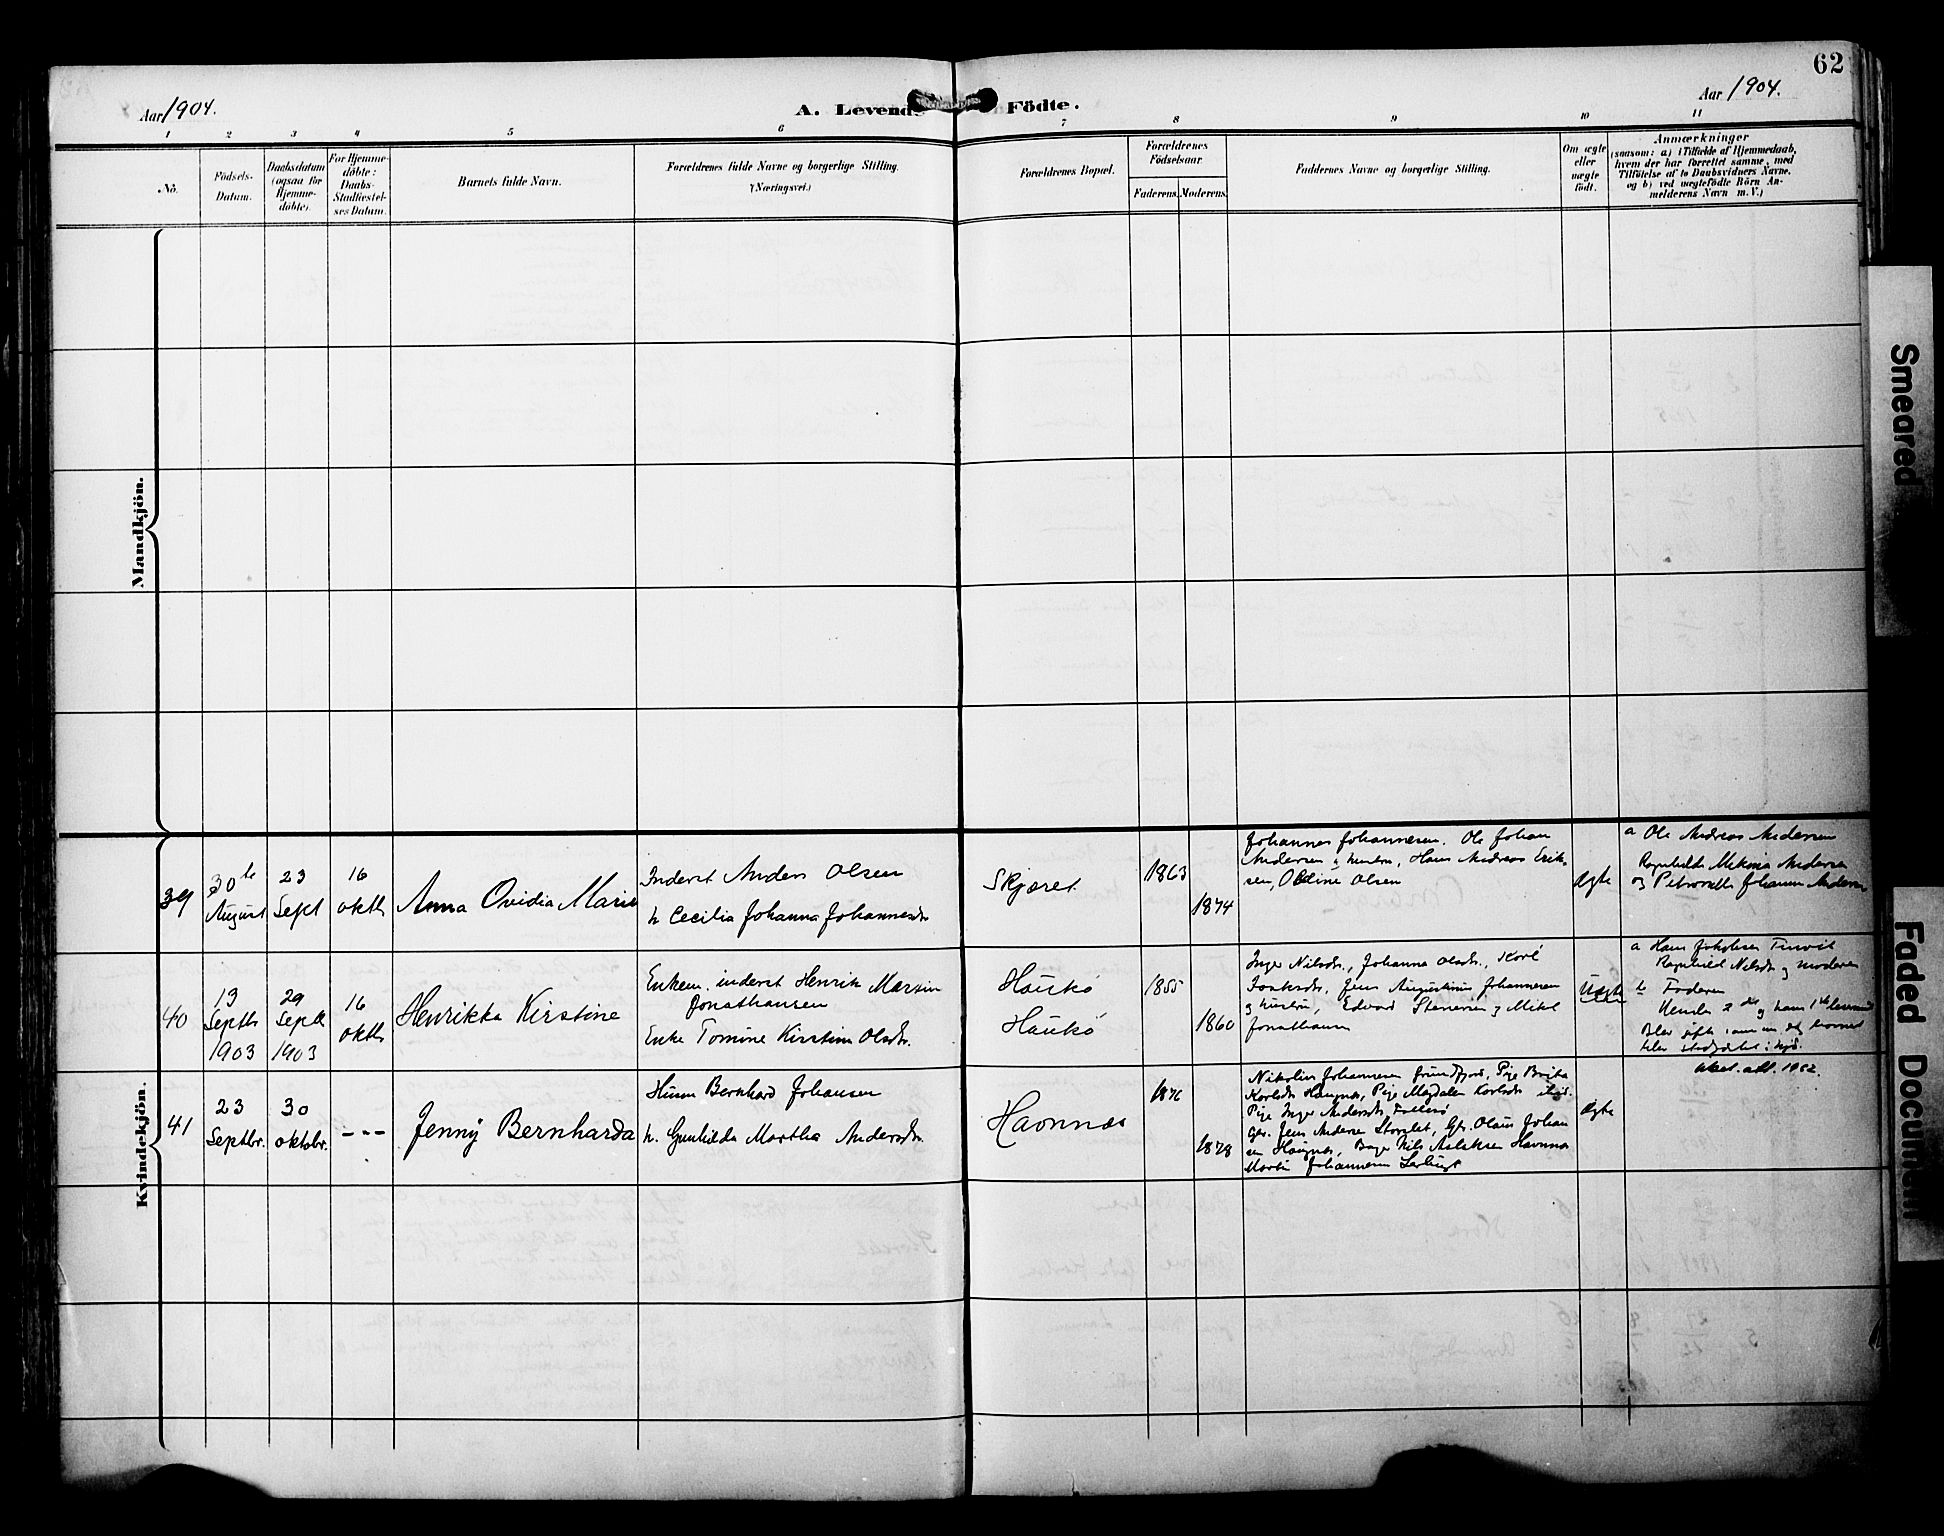 62
Aar 1904.
A. Levende Födte.
Aar 1904.
1 2 3 4 5 6 7 8 9 10 11
No.
Födsels-
Datum.
Daabsdatum
(ogsaa for
Hjemme-
döbte).
For Hjemme-
döbte:
Daabs-
Stadfæstel-
ses Datum.
Barnets fulde Navn.
Forældrenes fulde Navne og borgerlige Stilling.
(Næringsvei.)
Forældrenes Bopæl.
Forældrenes
Födselsaar.
Faderens.
Moderens.
Faddernes Navne og borgerlige Stilling.
Om ægte
eller
uægte
födt.
Anmærkninger
(saasom: a) i Tilfælde af Hjemmedaab,
hvem der har forrettet samme, med
Tilföielse af to Daabsvidners Navne.
og b) ved uægtefödte Börn An-
melderens Navn m. V.)
Mandkjön.
Kvindekjön.
39
30te
August
23
Sept
16
oktb
Anna Ovidia Marie
Inderst Anders Olsen
h. Cecilia Johanna Johannesdr
Skjæret
1863
1874
Johannes Johannesen. Ole Johan
Andersen og hustru, Hans Andreas Erik-
sen, Oline Olsen
Ægte
a Ole Andreas Andersen
Ragnhild Mekonia Andersen
og Petronella Johanna Andersen
40
19
Septb
1903
29
Septb
1903
16
oktb
Henrikka Kirstine
Enkem. inderst Henrik Martin
Jonathansen
Enke Tomine Kirstine Olsdr.
Haukö
Haukö
1855
1860
Inger Nilsdr., Johanna Olsdr., Karl
Isaksdr., Jens Augustinus Johannesen
og hustru, Edvard Stenersen og Mikal
Jonathansen
Uægte
a Hans Jakobsen
Ragnhild Nilsdr og moderen
b Faderen
Hendes 2det og hans 1ste leiermaal
41
23
Septbr.
30
oktobr.
---
Jenny Bernharda
Husm Bernhard Johansen
h. Gunhilda Martha Andersdr.
Havnnæs
1876
1878
Nikolai Johannesen Grundfjord, Pige Berita
Karlsdr Hamnes, Pige Magdalen Karlsdr
Pige Inger Andersdr
Gbr. Jens Andersen Storslet, Gbr. Olaus Johan
sen Havnnæs, Nils Aslaksen Havnnæs
Martin Johannesen
Ægte
Smeared
Faded Document